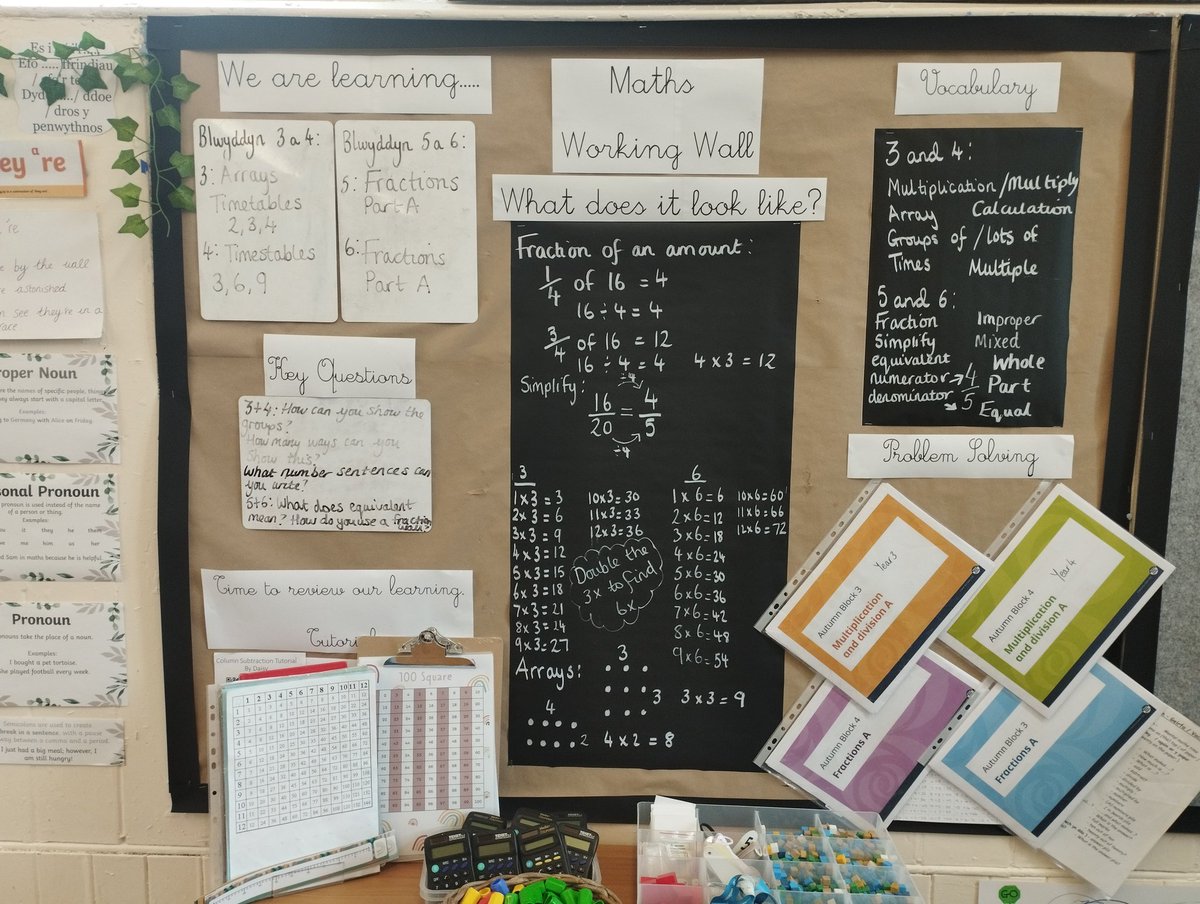 Es i
Efo ..... ffrindiau
Dydd ..../ ddoe
/ dros y
penwythnos
ey 're
a
're
e by the wall
re astonished
n see they're in a
race
roper Noun
re the names of specific people, things
ey always start with a capital letter.
Examples:
g to Germany with Alice on Friday.
sonal Pronoun
pronoun is used instead of the name
of a person or thing.
Examples:
ou it they he them
me him us her
ed Sam in maths because he is helpful.
Pronoun
onouns take the place of a noun.
Examples:
I bought a pet tortoise.
She played football every week.
Semicolons are used to create
break in a sentence, with a pause
way between a comma and a period.
I just had a big meal; however, I
am still hungry!
We are learning.....
Blwyddyn 3 a 4:
3: Arrays
Timetables
2, 3, 4
4: Timestables
3, 6, 9
Blwyddyn 5 a 6:
5: Fractions
Part A
6: Fractions
Part A
Key Questions
3+4: How can you show the
groups?
How many ways can you
show this?
What number sentences can
you write?
5+6: What does equivalent
mean? How do you use a fraction
wall?
Time to review our learning.
Column Subtraction Tutorial
By Daisy
1 2 3 4 5 6 7 8 9 10 11 12
100 Square
Maths
Working Wall
What does it look like?
Fraction of an amount:
1/4 of 16 = 4
16 ÷ 4 = 4
3/4 of 16 = 12
16 ÷ 4 = 4 4 x 3 = 12
Simplify:
÷4
16/20 = 4/5
÷4
3
1 x 3 = 3
2 x 3 = 6
3 x 3 = 9
4 x 3 = 12
5 x 3 = 15
6 x 3 = 18
7 x 3 = 21
8 x 3 = 24
9 x 3 = 27
10 x 3 = 30
11 x 3 = 33
12 x 3 = 36
Double the
3x to find
6x
6
1 x 6 = 6
2 x 6 = 12
3 x 6 = 18
4 x 6 = 24
5 x 6 = 30
6 x 6 = 36
7 x 6 = 42
8 x 6 = 48
9 x 6 = 54
10 x 6 = 60
11 x 6 = 66
12 x 6 = 72
Arrays:
3
3 3 x 3 = 9
4
2 4 x 2 = 8
Vocabulary
3 and 4:
Multiplication/Multiply
Array Calculation
Groups of / lots of
Times Multiple
5 and 6:
Fraction Improper
Simplify Mixed
equivalent Whole
numerator → 4 Part
denominator → 5 Equal
Problem Solving
Year 3
Autumn Block 3
Multiplication
and division A
Year 4
Autumn Block 4
Multiplication
and division A
Autumn Block 4
Fractions A
Autumn Block 3
Fractions A
GO